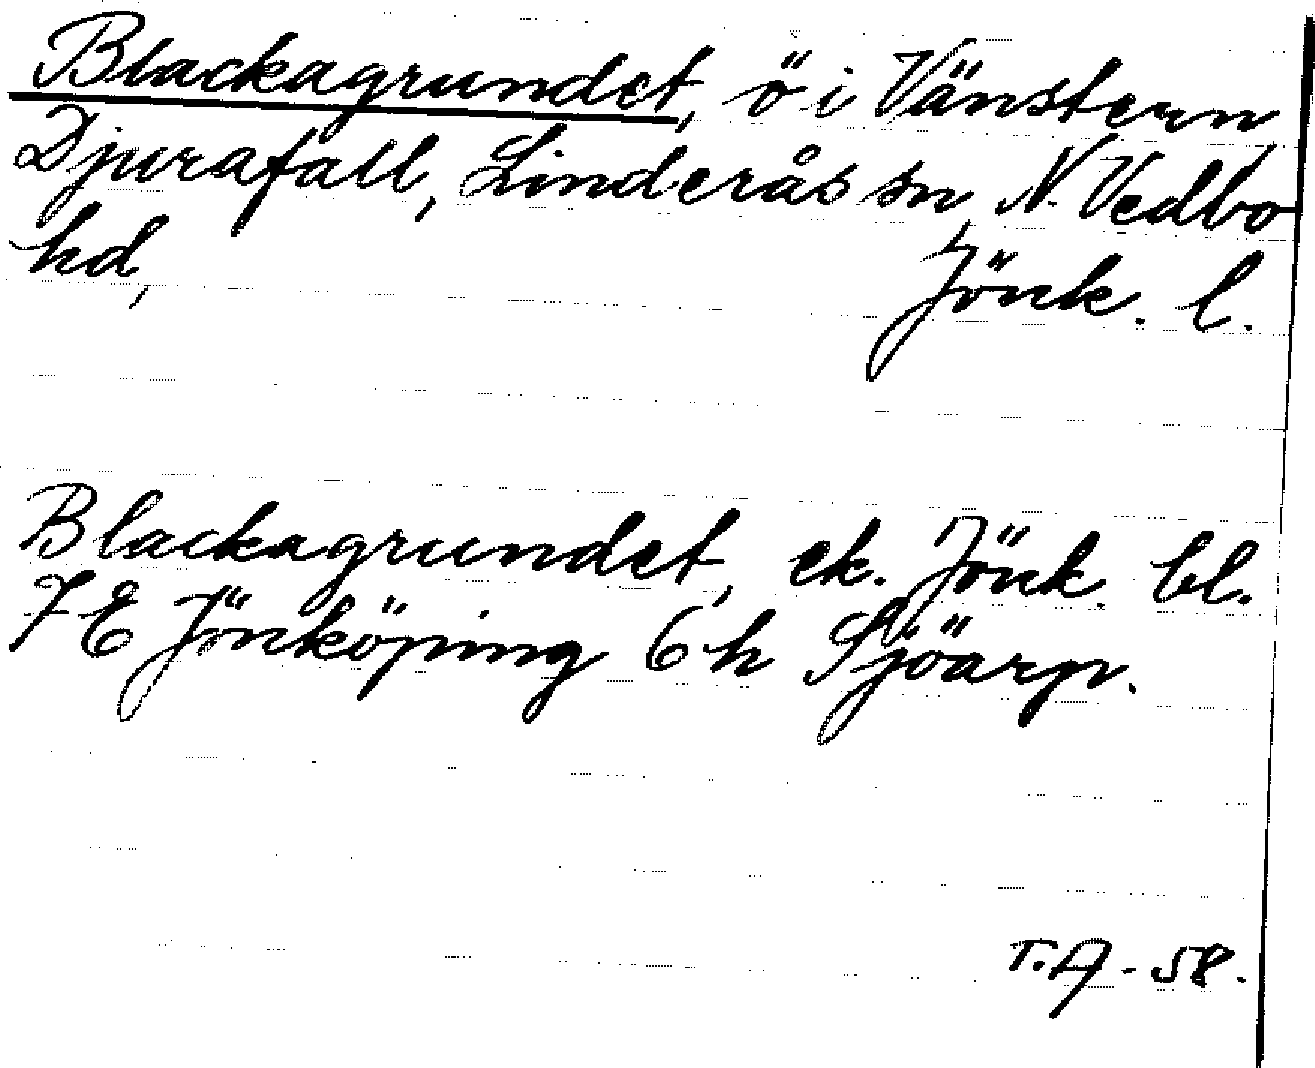 Blackagrundet, ö i Vänstern
Djurafall, Linderås sn, N. Vedbo
hd,
Jönk. l.
Blackagrundet, ek. Jönk. bl.
7E Jönköping 6h Sjöarp.
T.A - 58.